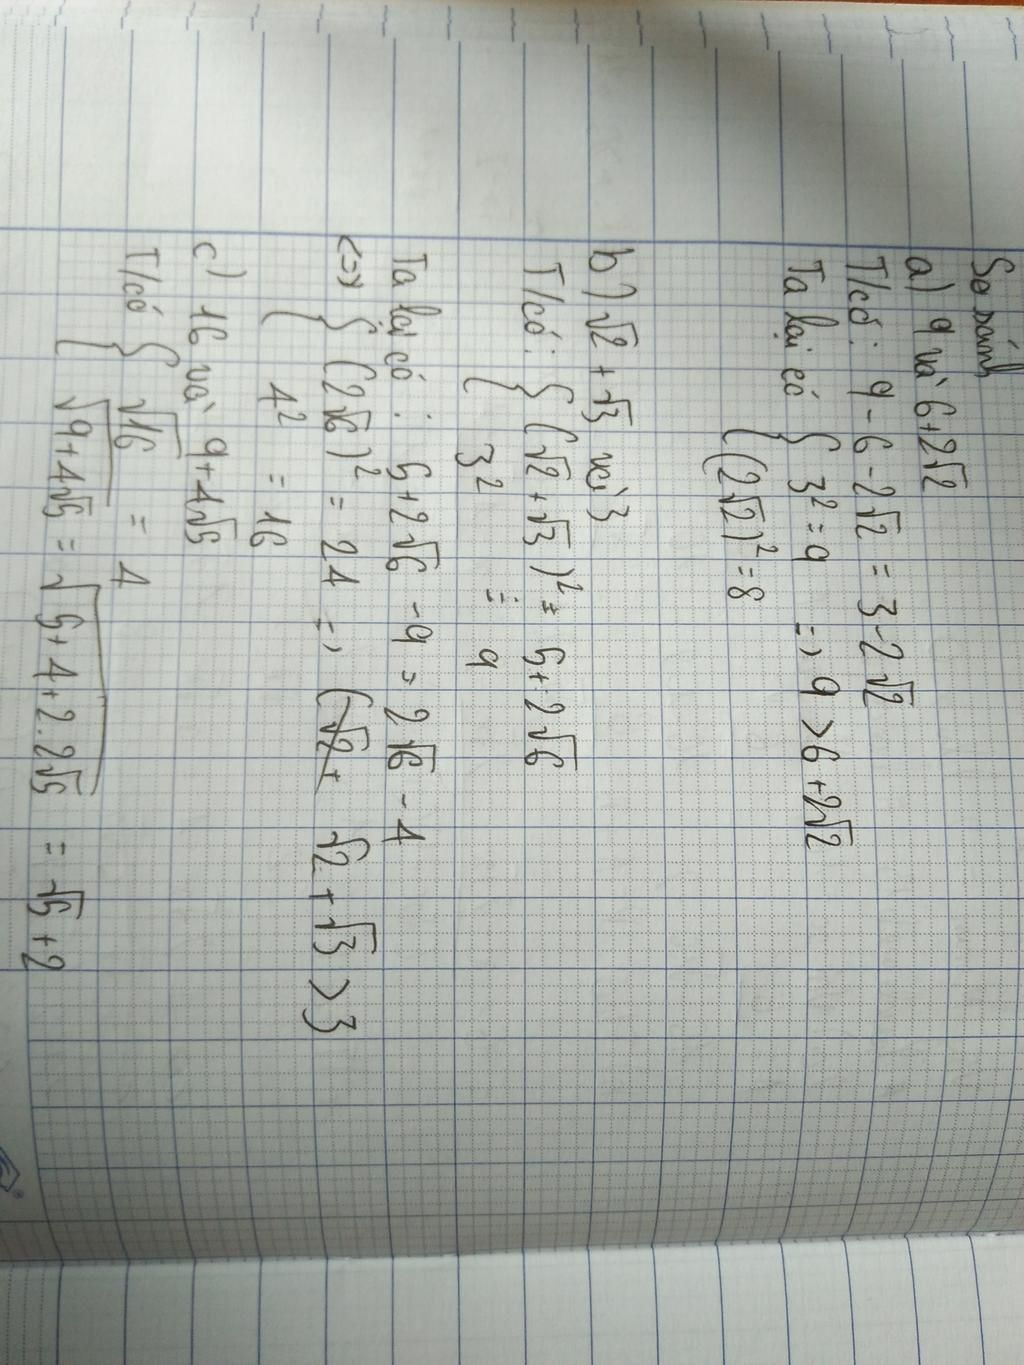 So sánh
a) 9 và 6+2√2
T/có: 9-6-2√2 = 3-2√2
Ta lại có { 3² = 9 => 9 > 6+2√2
{ (2√2)² = 8
b) √2 + √3 và 3
T/có: { (√2 + √3)² = 5 + 2√6
{ 3² = 9
Ta lại có: 5+2√6 - 9 = 2√6 - 4
<=> { (2√6)² = 24 => √2 + √3 > 3
{ 4² = 16
c) 16 và 9+4√5
T/có { √16 = 4
{ √9+4√5 = √5+4+2.2√5 = √5+2